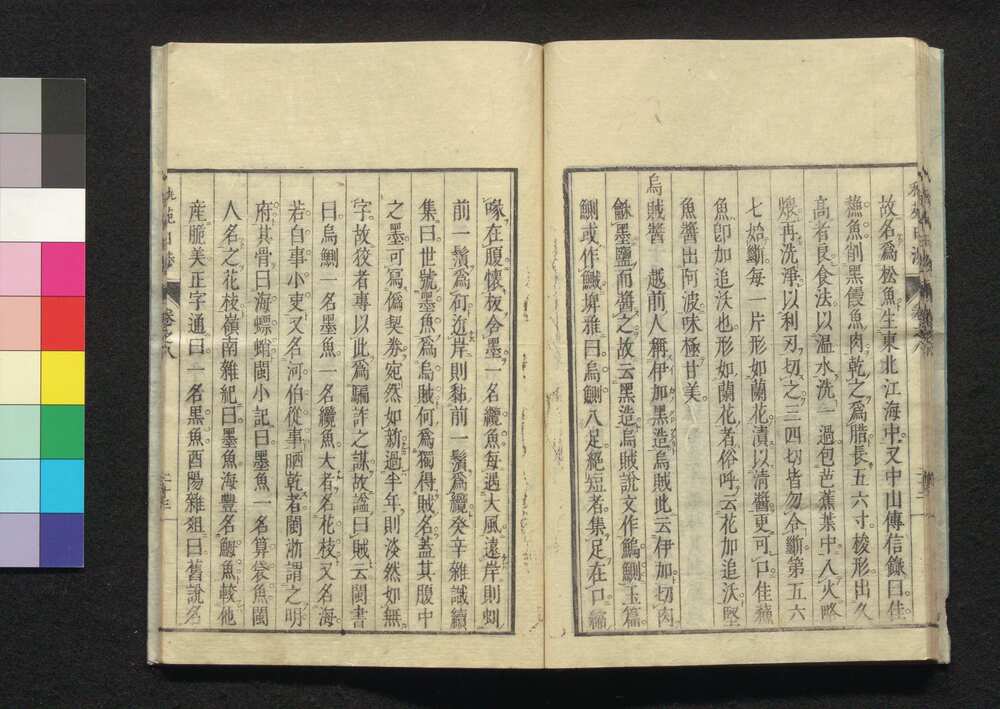 故名爲松魚生東北江海中又中山傳信錄曰佳
蘓魚削黑饅魚肉乾之爲腊長五六寸梭形出久
高者良食法以温水洗一過包芭蕉葉中入火略
煨再洗淨以利刃切之三四切皆勿令斷第五六
七始斷每一片形如蘭花漬以清醬更可口佳蘓
魚卽加追沃也形如蘭花者俗呼云花加追沃堅
魚醬出阿波味極甘美
烏賊醬 越前人稱伊加黑造烏賊此云伊加切肉
龢墨鹽而醬之故云黑造烏賊說文作鰞鰂玉篇
鰂或作鱡埤雅曰烏鰂八足絕短者集足在口縮
喙在腹懷板含墨一名纜魚每遇大風遠岸則虯
前一鬚爲矴近岸則黏前一鬚爲纜癸辛雜識續
集曰世號墨魚爲烏賊何爲獨得賊名蓋其腹中
之墨可寫僞契券宛然如新過半年則淡然如無
字故狡者專以此爲騙詐之謀故諡曰賊云閩書
曰烏鰂一名墨魚一名纜魚大者名花枝又名海
若白事小吏又名河伯從事晒乾者閩浙謂之明
府其骨曰海螵蛸閩小記曰墨魚一名算袋魚閩
人名之花枝嶺南雜紀曰墨魚海豐名魚較他
産脆美正字通曰一名黑魚酉陽雜俎曰舊說名
卷之八